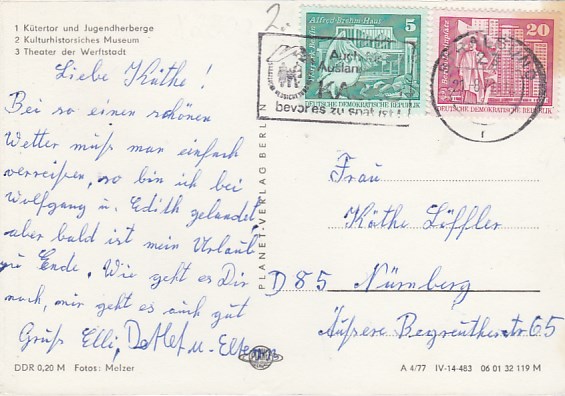 1 Kütertor und Jugendherberge
2 Kulturhistorisches Museum
3 Theater der Werftstadt
Liebe Käthe!
Bei so einen schönen
Wetter muß man einfach
verreißen, so bin ich bei
Wolfgang u. Edith gelandet,
aber bald ist mein Urlaub
zu Ende. Wie geht es Dir
noch, mir geht es auch gut
Gruß Elli, Detlef u. Eltern
DDR 0,20 M Fotos: Melzer
PLANET-VERLAG BERLIN
2.
Alfred-Brehm-Haus
5
DEUTSCHE DEMOKRATISCHE REPUBLIK
20
DEUTSCHE DEMOKRATISCHE REPUBLIK
Auch
Ausland
bevor es zu spät ist!
STRALSUND
Frau
Käthe Löffler
D 85 Nürnberg
Äußere Bayreutherstr 65
A 4/77 IV-14-483 06 01 32 119 M